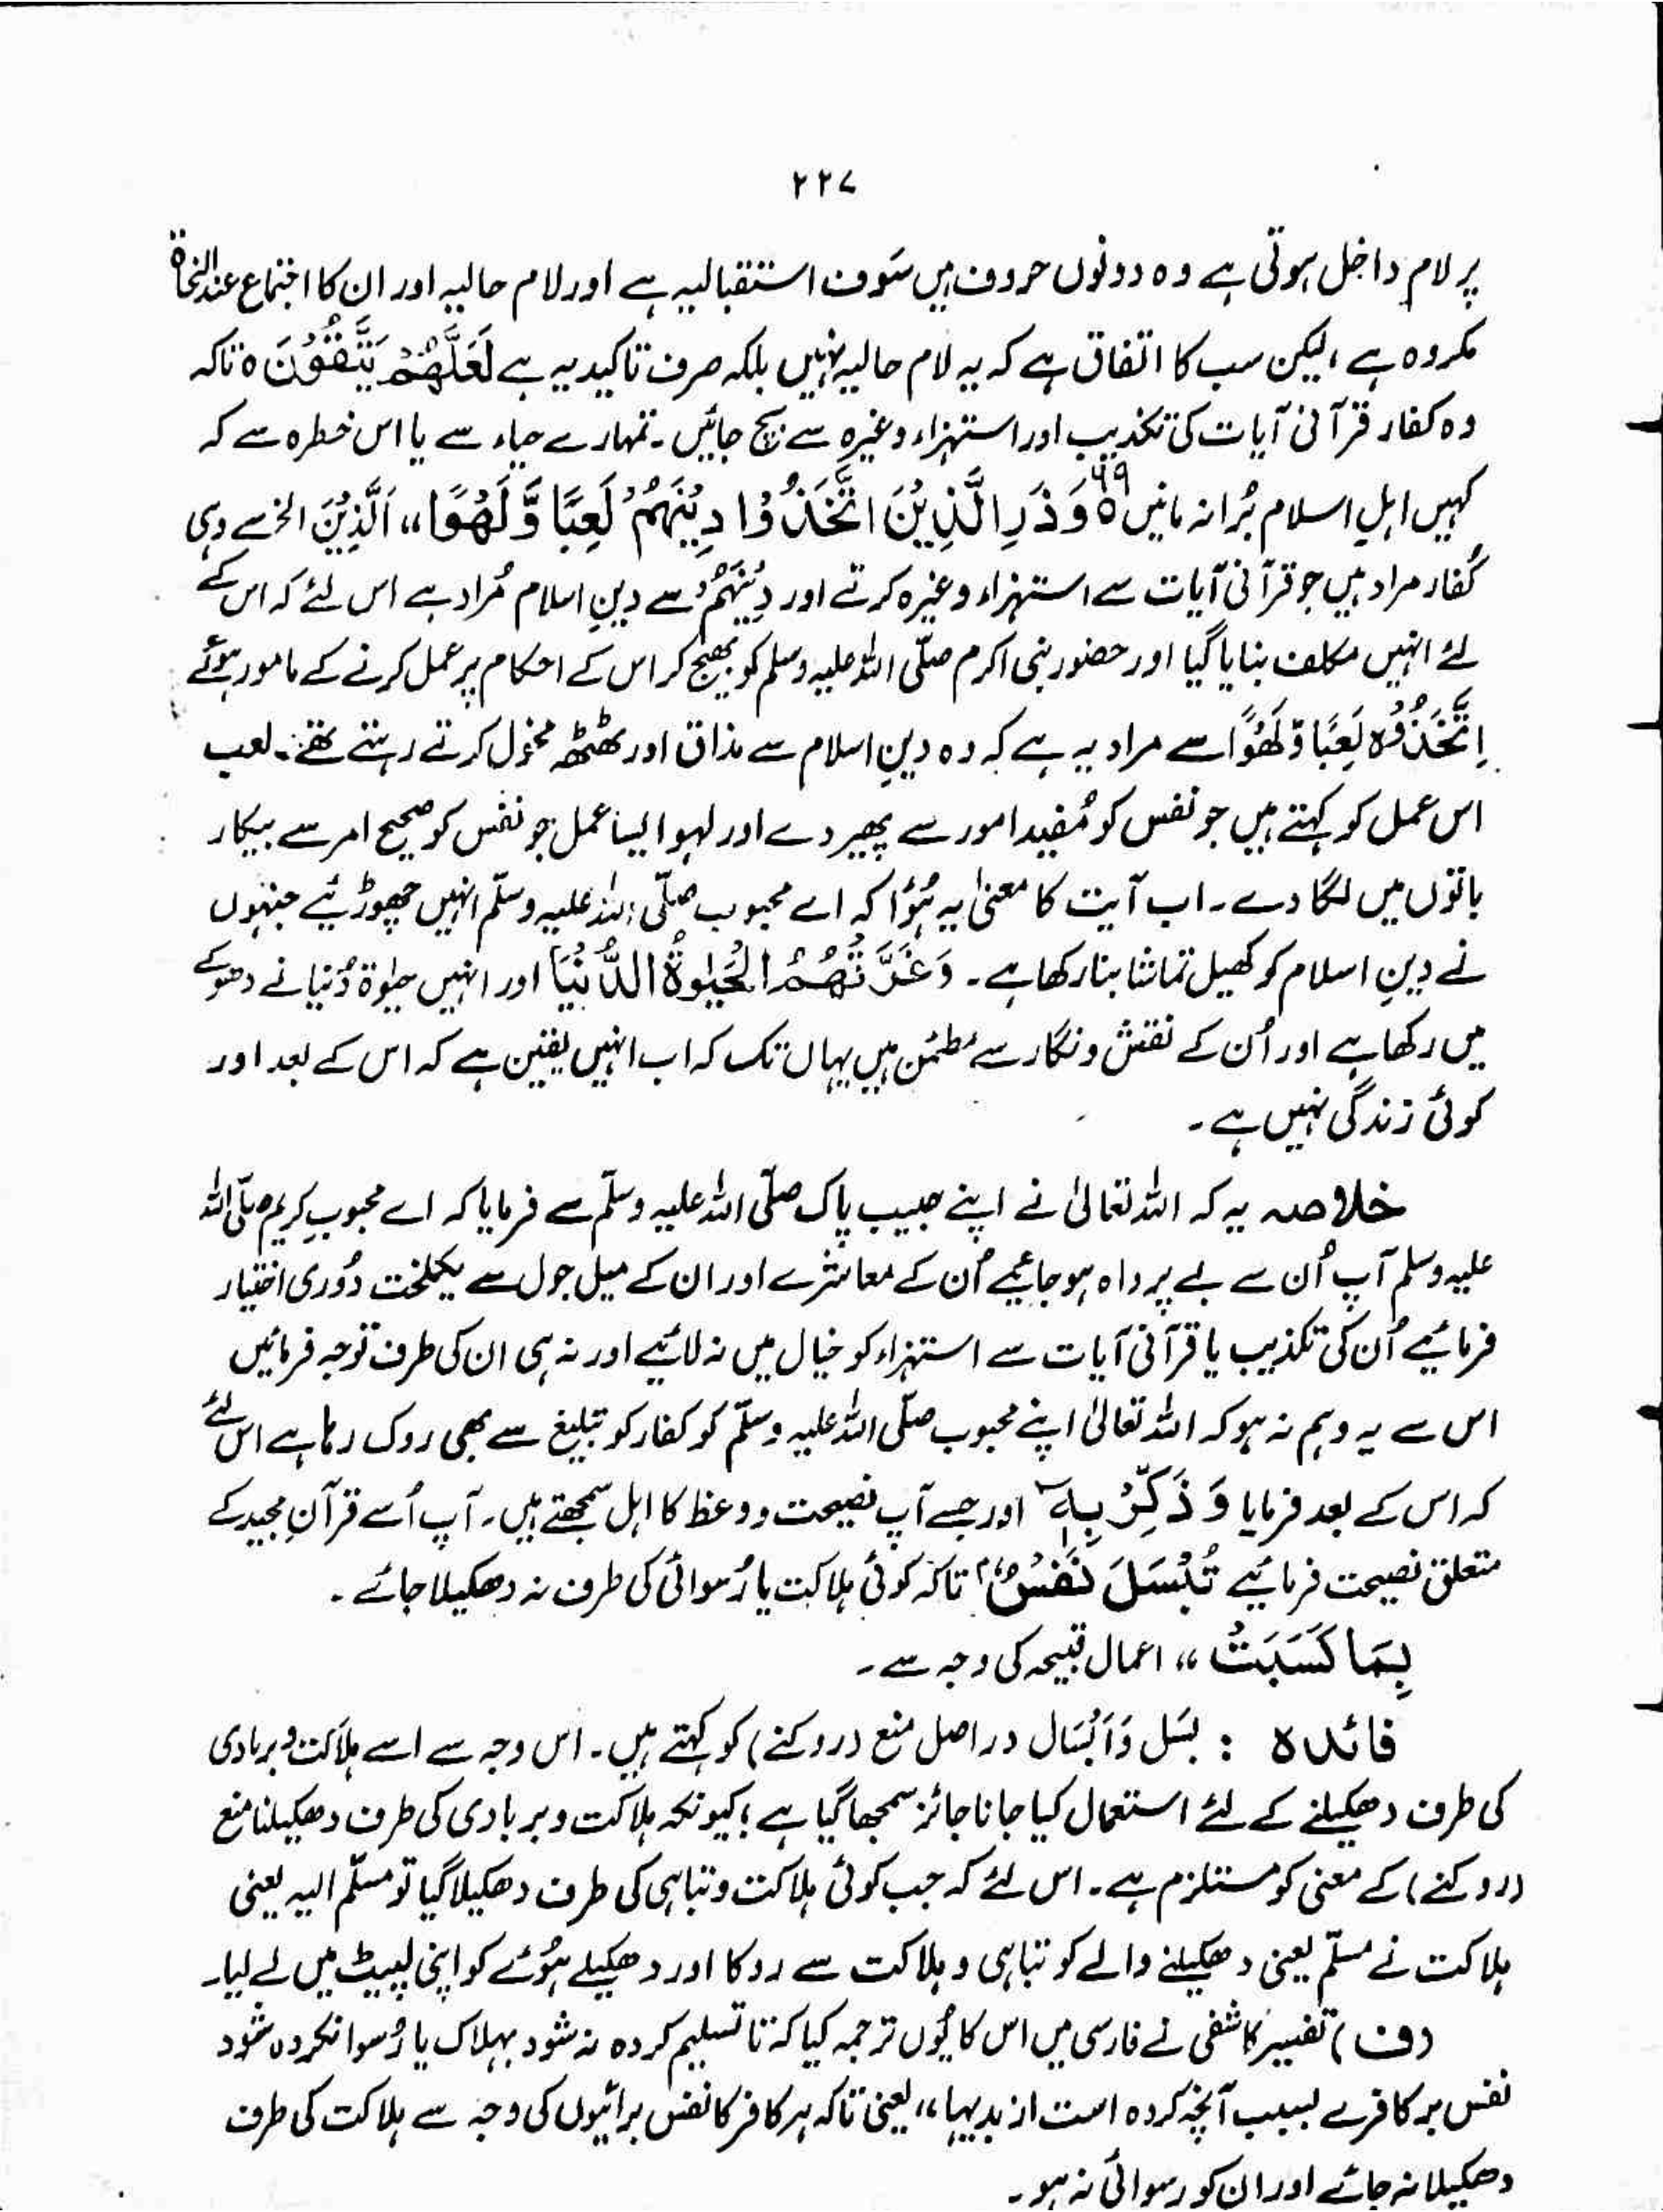 ۲۲۷
پر لام داخل ہوتی ہے وہ دونوں حروف ہیں سَوف استقبالیہ ہے اور لام حالیہ اور ان کا اجتماع عندالنحاۃ
مکروہ ہے، لیکن سب کا اتفاق ہے کہ یہ لام حالیہ نہیں بلکہ صرف تاکیدیہ ہے لَعَلَّهُمْ يَتَّقُوْنَ ۝ تاکہ
وہ کفار قرآنی آیات کی تکذیب اور استہزاء وغیرہ سے بچ جائیں۔ تمہارے حیاء سے یا اس خطرہ سے کہ
کہیں اہلِ اسلام بُرا نہ مانیں ۶۹ وَذَرِ الَّذِيْنَ اتَّخَذُوْا دِيْنَهُمْ لَعِبًا وَّ لَهْوًا،، اَلَّذِيْنَ الخ سے وہی
کُفار مراد ہیں جو قرآنی آیات سے استہزاء وغیرہ کرتے اور دِيْنَهُمْ سے دینِ اسلام مُراد ہے اس لئے کہ اس کے
لئے انہیں مکلف بنایا گیا اور حضور نبی اکرم صلّی اللہ علیہ وسلم کو بھیج کر اس کے احکام پر عمل کرنے کے مامور ہوئے
اِتَّخَذُوْهُ لَعِبًا وَّ لَهْوًا سے مراد یہ ہے کہ وہ دینِ اسلام سے مذاق اور ٹھٹھہ مخول کرتے رہتے تھے۔ لعب
اس عمل کو کہتے ہیں جو نفس کو مُفید امور سے پھیر دے اور لہو ایسا عمل جو نفس کو صحیح امر سے بیکار
باتوں میں لگا دے۔ اب آیت کا معنیٰ یہ ہُوا کہ اے محبوب صلّی اللہ علیہ وسلّم انہیں چھوڑئیے جنہوں
نے دینِ اسلام کو کھیل تماشا بنا رکھا ہے۔ وَغَرَّتْهُمُ الْحَيٰوةُ الدُّنْيَا اور انہیں حیٰوۃ دُنیا نے دھوکے
میں رکھا ہے اور اُن کے نقش و نگار سے مطمئن ہیں یہاں تک کہ اب انہیں یقین ہے کہ اس کے بعد اور
کوئی زندگی نہیں ہے۔
خلاصہ یہ کہ اللہ تعالیٰ نے اپنے حبیب پاک صلّی اللہ علیہ وسلّم سے فرمایا کہ اے محبوبِ کریم صلّی اللہ
علیہ وسلم آپ اُن سے بے پرواہ ہو جائیے اُن کے معاشرے اور ان کے میل جول سے یکلخت دُوری اختیار
فرمائیے اُن کی تکذیب یا قرآنی آیات سے استہزاء کو خیال میں نہ لائیے اور نہ ہی ان کی طرف توجہ فرمائیں
اس سے یہ وہم نہ ہو کہ اللہ تعالیٰ اپنے محبوب صلّی اللہ علیہ وسلّم کو کفار کو تبلیغ سے بھی روک رہا ہے اس لئے
کہ اس کے بعد فرمایا وَ ذَكِّرْ بِهٖ اور جسے آپ نصیحت و وعظ کا اہل سمجھتے ہیں۔ آپ اُسے قرآنِ مجید کے
متعلق نصیحت فرمائیے تُبْسَلَ نَفْسٌ تاکہ کوئی ہلاکت یا رُسوائی کی طرف نہ دھکیلا جائے۔
بِمَا كَسَبَتْ،، اعمال قبیحہ کی وجہ سے۔
فائدہ : بَسَل وَ اَبْسَال در اصل منع (روکنے) کو کہتے ہیں۔ اس وجہ سے اسے ہلاکت و بربادی
کی طرف دھکیلنے کے لئے استعمال کیا جانا جائز سمجھا گیا ہے؛ کیونکہ ہلاکت و بربادی کی طرف دھکیلنا منع
(روکنے) کے معنی کو مستلزم ہے۔ اس لئے کہ جب کوئی ہلاکت و تباہی کی طرف دھکیلا گیا تو مسلّم الیہ یعنی
ہلاکت نے مسلّم یعنی دھکیلنے والے کو تباہی و ہلاکت سے روکا اور دھکیلے ہُوئے کو اپنی لپیٹ میں لے لیا۔
(ف) تفسیر کاشفی نے فارسی میں اس کا یُوں ترجمہ کیا کہ تا تسلیم کردہ نہ شود بہلاک یا رُسوا نکردہ شود
نفس ہر کافرے بسبب آنچہ کردہ است از بدیہا،، یعنی تاکہ ہر کافر کا نفس برائیوں کی وجہ سے ہلاکت کی طرف
دھکیلا نہ جائے اور ان کو رسوائی نہ ہو۔